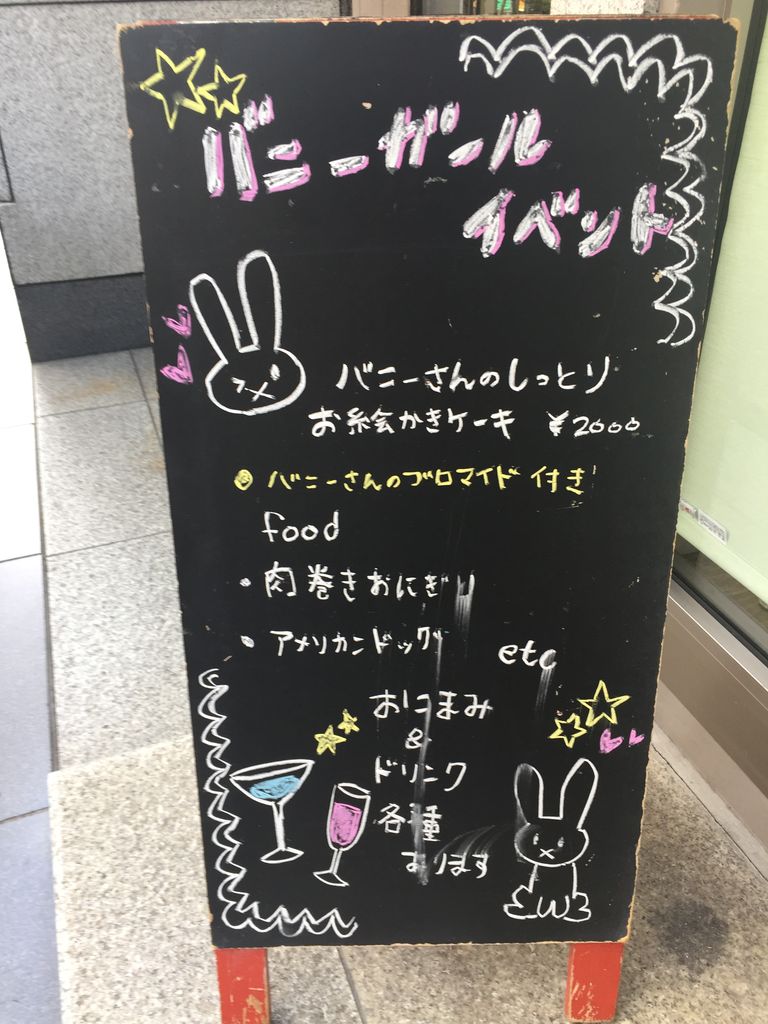 バニーガール
イベント
バニーさんのしっとり
お絵かきケーキ ¥2000
バニーさんのブロマイド付き
food
・肉巻きおにぎり
・アメリカンドッグ
etc
おにまみ
&
ドリンク
各種
あります